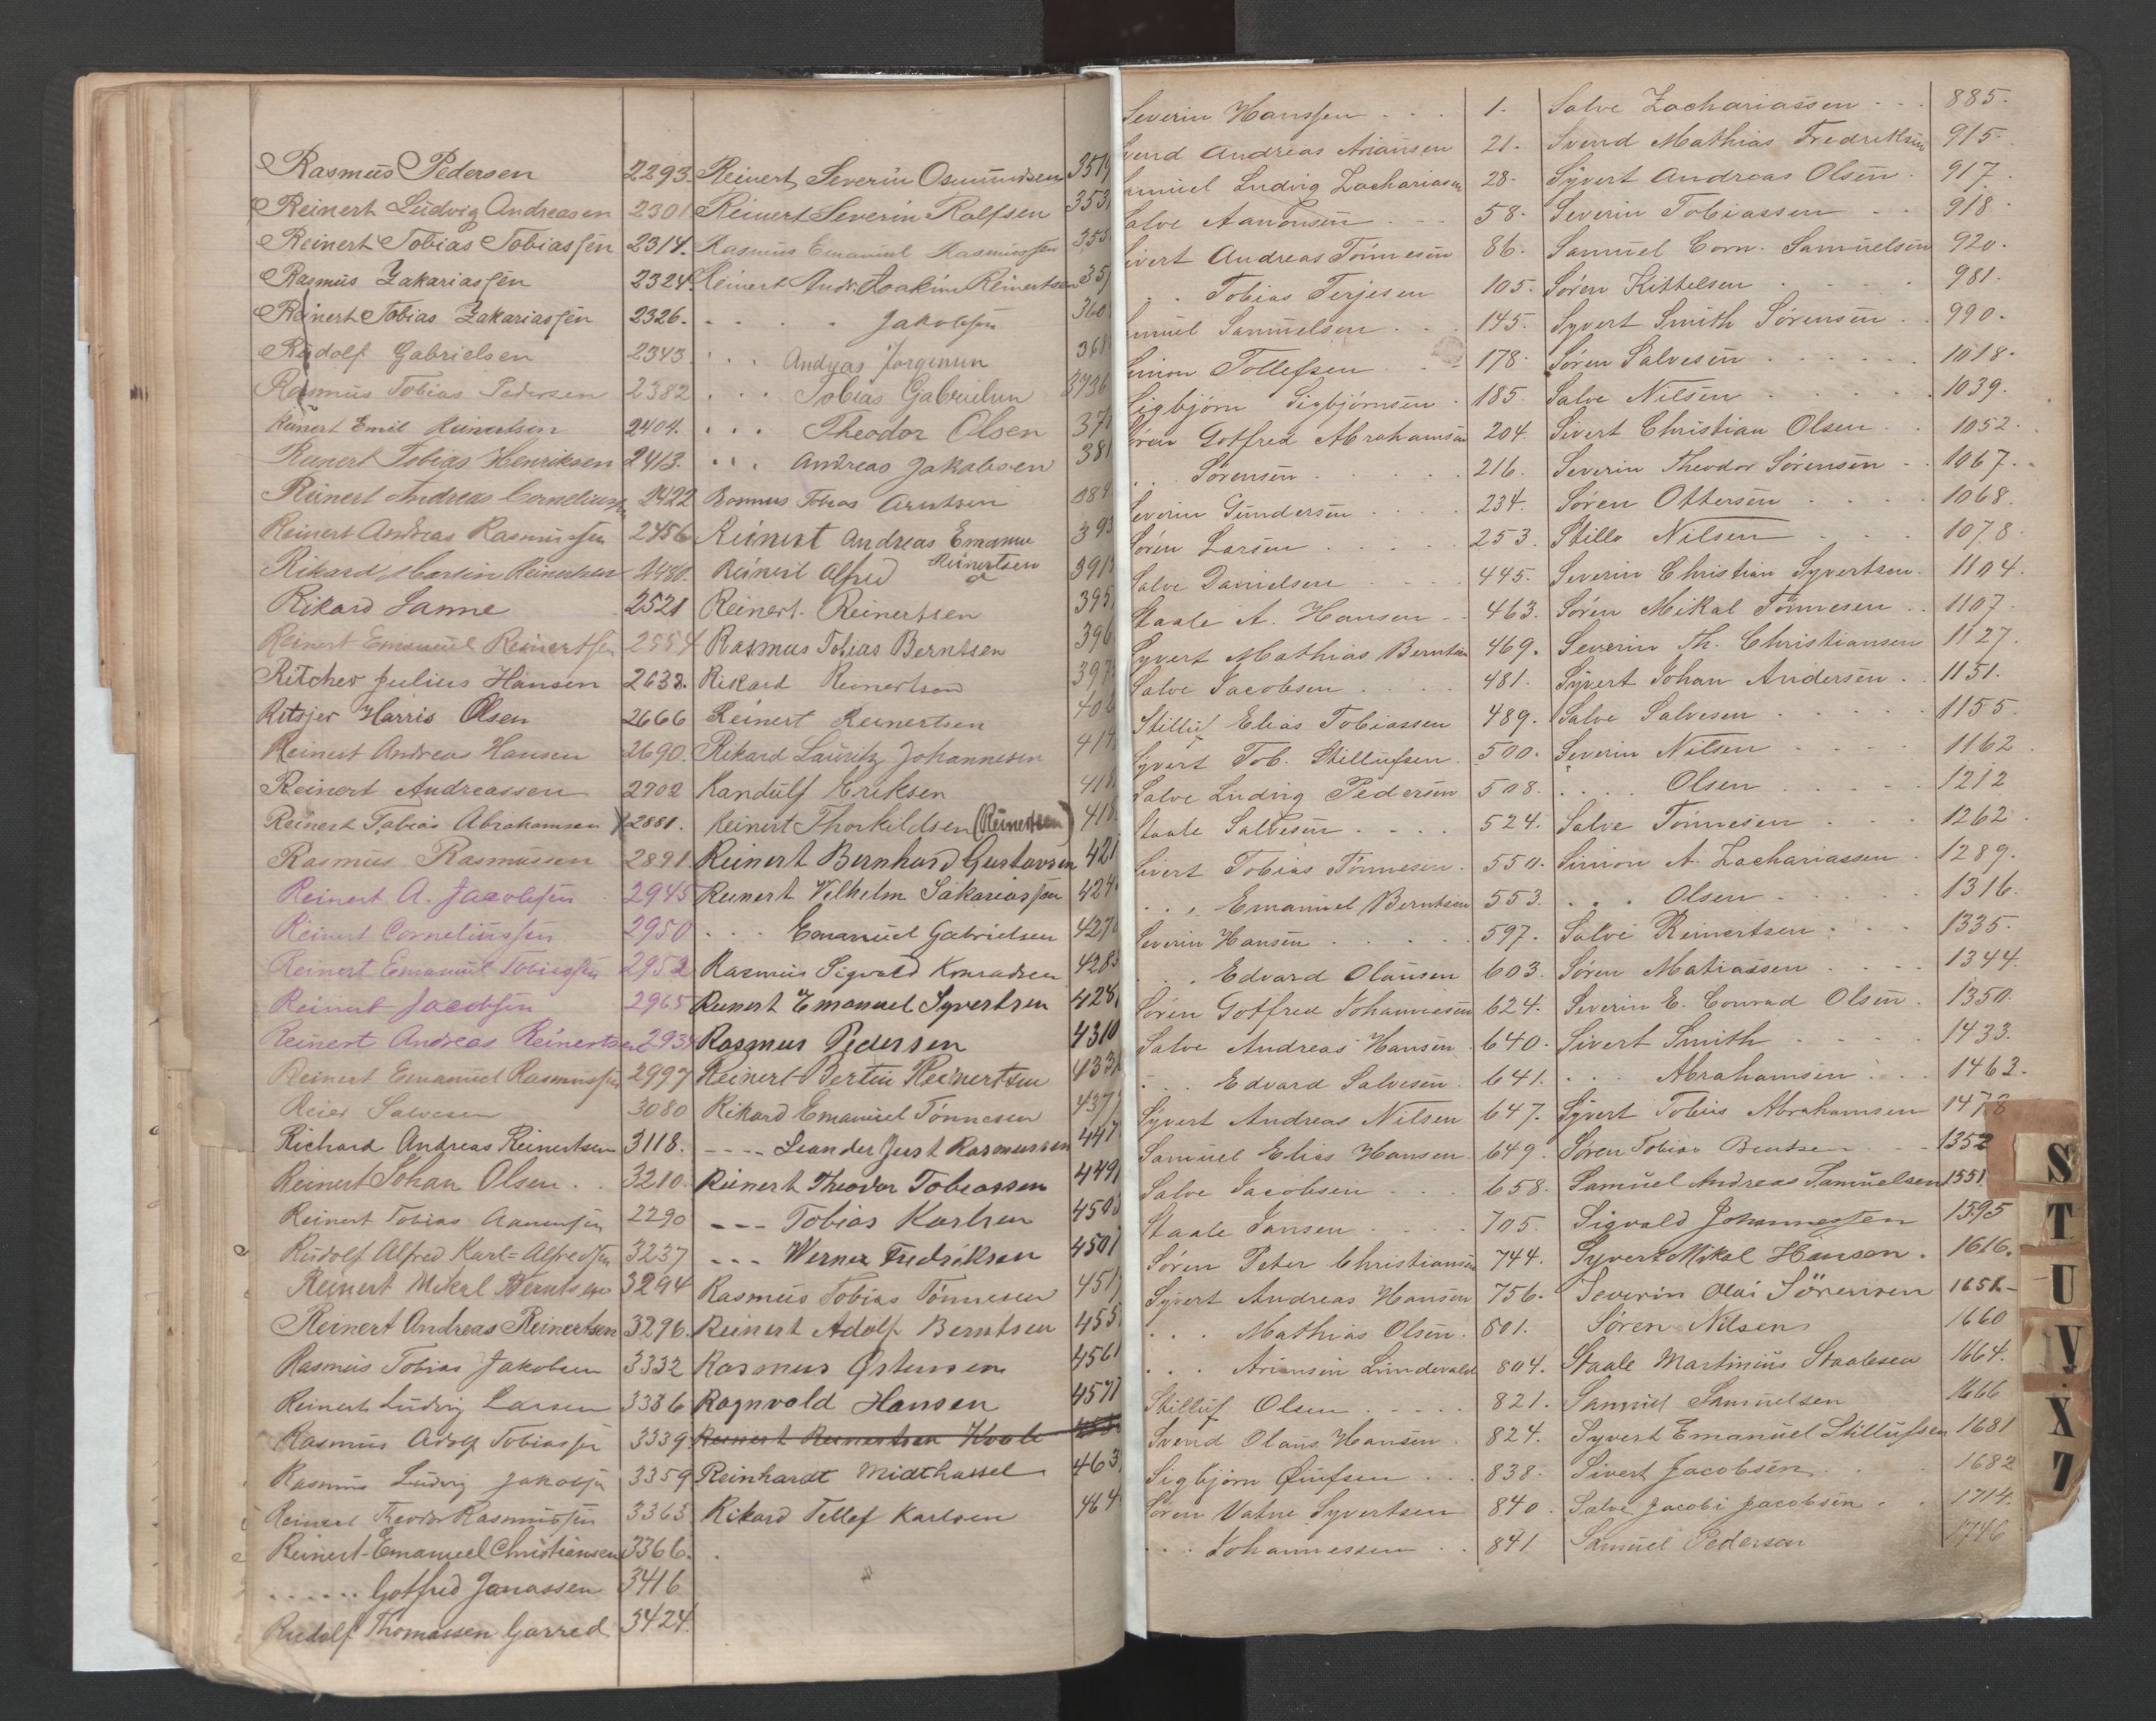 Rasmus Pedersen 2293.
Reinert Ludvig Andreasen 2301
Reinert Tobias Tobiassen 2314.
Rasmus Zakariassen 2324.
Reinert Tobias Zakariassen 2326.
Rudolf Gabrielsen 2343
Rasmus Tobias Pedersen 2382
Reinert Emil Reinertsen 2404.
Reinert Tobias Henriksen 2413.
Reinert Andreas Corneliussen 2422
Reinert Andreas Rasmussen 2456
Rikard Martin Reinertsen 2480.
Rikard Janne 2521
Reinert Emanuel Reinertsen 2554
Ritcher Julius Hansen 2638.
Ritsjer Harris Olsen 2666
Reinert Andreas Hansen 2690.
Reinert Andreassen 2702
Reinert Tobias Abrahamsen 2881.
Rasmus Rasmussen 2891.
Reinert A. Jacobsen 2945
Reinert Corneliussen 2950
Reinert Emanuel Tobiassen 2952
Reinert Jacobsen 2965
Reinert Andreas Reinertsen 293
Reinert Emanuel Rasmussen 2997
Reier Salvesen 3080
Richard Andreas Reinertsen 3118.
Reinert Johan Olsen . . 3210
Reinert Tobias Aanensen 2290
Rudolf Alfred Karl=Alfredsen 3237
Reinert Mikal Berntsen 3294
Reinert Andreas Reinertsen 3296.
Rasmus Tobias Jakobsen 3332
Reinert Ludvig Larsen 3336
Rasmus Adolf Tobiassen 3339
Rasmus Ludvig Jakobsen 3359
Reinert Theodor Rasmussen 3363
Reinert Emanuel Christiansen 3366.
. . . . . . Gotfred Janassen 3416
Rudolf Thomassen Garred 3424.
Reinert Severin Osmundsen 351
Reinert Severin Rolfsen 353
Rasmus Emanuel Rasmussen 353
Reinert Andr. Joakim Reinertsen 35
. . . . Jakobsen 360
. . . Andreas Jørgensen 368
. . . Tobias Gabrielsen 3736
. . . Theodor Olsen 37
. . . Andreas Jakobsen 381
Rasmus Tobias Arntsen
Reinert Andreas Emanu 393
Reinertsen
Reinert Alfred 391
Reinert Reinertsen 395
Rasmus Tobias Berntsen 396
Rikard Reinertsen 397
Reinert Reinertsen 402
Rikard Lauritz Johannesen 414
Randulf Eriksen 418
Reinert Thorkildsen (Reinertsen) 418
Reinert Bernhard Gustavsen 421
Reinert Vilhelm Sakariassen 424
. . . Emanuel Gabrielsen 427
Rasmus Sigvald Konradsen 428
Reinert Emanuel Syvertsen 428
Rasmus Pedersen 4310
Reinert Bertin Reinertsen 433
Rikard Emanuel Tønnesen 437
---- Leander Just Rasmussen 447
Reinert Theodor Tobiassen 449
--- Tobias Karlsen 450
--- Werner Fredriksen 450
Rasmus Tobias Tønnesen 451
Reinert Adolf Berntsen 455
Rasmus Østensen 456
Ragnvald Hansen 457
Reinert Reinertsen Kvale
Reinhardt Midthassel 463
Rikard Tellef Karlsen 464
Severin Hanssen . . . 1.
vend Andreas Ariansen 21.
amuel Ludvig Zachariasen 28.
Salve Aanonsen . . . 58.
ivert Andreas Tönnesen 86.
. . Tobias Terjesen 105.
amuel Samuelsen . . . 145.
imon Tollefsen . . . 178.
Sigbjörn Sigbjörnsen . 185.
ören Gotfred Abrahamsen 204.
. . Sørensen . . . . 216.
Severin Gundersen . . . . 234.
Sören Larsen . . . . . 253.
Salve Danielsen . . . . 445.
Staale A. Hansen . . 463.
Syvert Mathias Berntsen 469.
Salve Jacobsen . . . . 481.
Stilluf Elias Tobiassen 489.
Syvert Tob. Stillufsen . 500.
Salve Ludvig Pedersen 508.
Staale Salvesen . . . . 524.
Sivert Tobias Tönnesen . 550.
. . . Emanuel Berntsen 553.
Severin Hansen . . . . . 597.
. . . Edvard Olausen 603.
Sören Gotfred Johannesen 624.
Salve Andreas Hansen . 640.
. . . Edvard Salvesen . 641.
Syvert Andreas Nilsen 647.
Samuel Elias Hansen 649.
Salve Jacobsen . . . 658.
Staale Jansen . . . . 705.
Sören Peter Christiansen 744.
Syvert Andreas Hansen 756.
. . . Mathias Olsen . 801.
. . . Ariansen Lundevold 804.
Stilluf Olsen . . . . . 821.
Svend Olaus Hansen . 824.
Sigbjörn Eiufsen . . . 838.
Sören Vatne Syvertsen 840.
. . . Johannessen . . 841
Salve Zachariassen . . . 885.
Svend Mathias Fredriksen 915.
Syvert Andreas Olsen . 917.
Severin Tobiassen . . 918.
Samuel Corn. Samuelsen 920.
Sören Kittelsen . . . . 981.
Syvert Smith Sörensen . . 990.
Sören Salvesen . . . . . 1018.
Salve Nilsen . . . . . 1039.
Sivert Christian Olsen . . 1052.
Severin Theodor Sörensen . . 1067.
Sören Ottersen . . . . 1068.
Stillo Nilsen . . . 1078.
Severin Christian Syvertsen . 1104.
Sören Mikal Tönnesen . . 1107.
Severin Th. Christiansen 1127.
Syvert Johan Andersen . . 1151.
Salve Salvesen . . . . . 1155.
Severin Nilsen . . . . . 1162.
. . . . Olsen . . . . . 1212
Salve Tönnesen . . . 1262.
Simon A. Zachariassen . 1289.
. . . Olsen . . . . 1316.
Salve Reinertsen . . . 1335.
Sören Matiassen . . . . 1344.
Severin E. Conrad Olsen . 1350.
Sivert Smith . . . . 1433.
. . . Abrahamsen . . . 1463.
Syvert Tobias Abrahamsen 1478
Søren Tobias Bentsen . . 1352
Samuel Andreas Samuelsen 1551.
Sigvald Johannessen 1595
Syvert Mikal Hansen . 1616.
Severin Olai Sörensen 1658.-
Søren Nilsen 1660
Staale Martinius Staalesen 1664.
Samuel Samuelsen 1666
Syvert Emanuel Stillufsen 1681
Sivert Jacobsen . . . 1682
Salve Jacobi Jacobsen . . 1714.
Samuel Pedersen 1746
S
T
U
V
X
Z